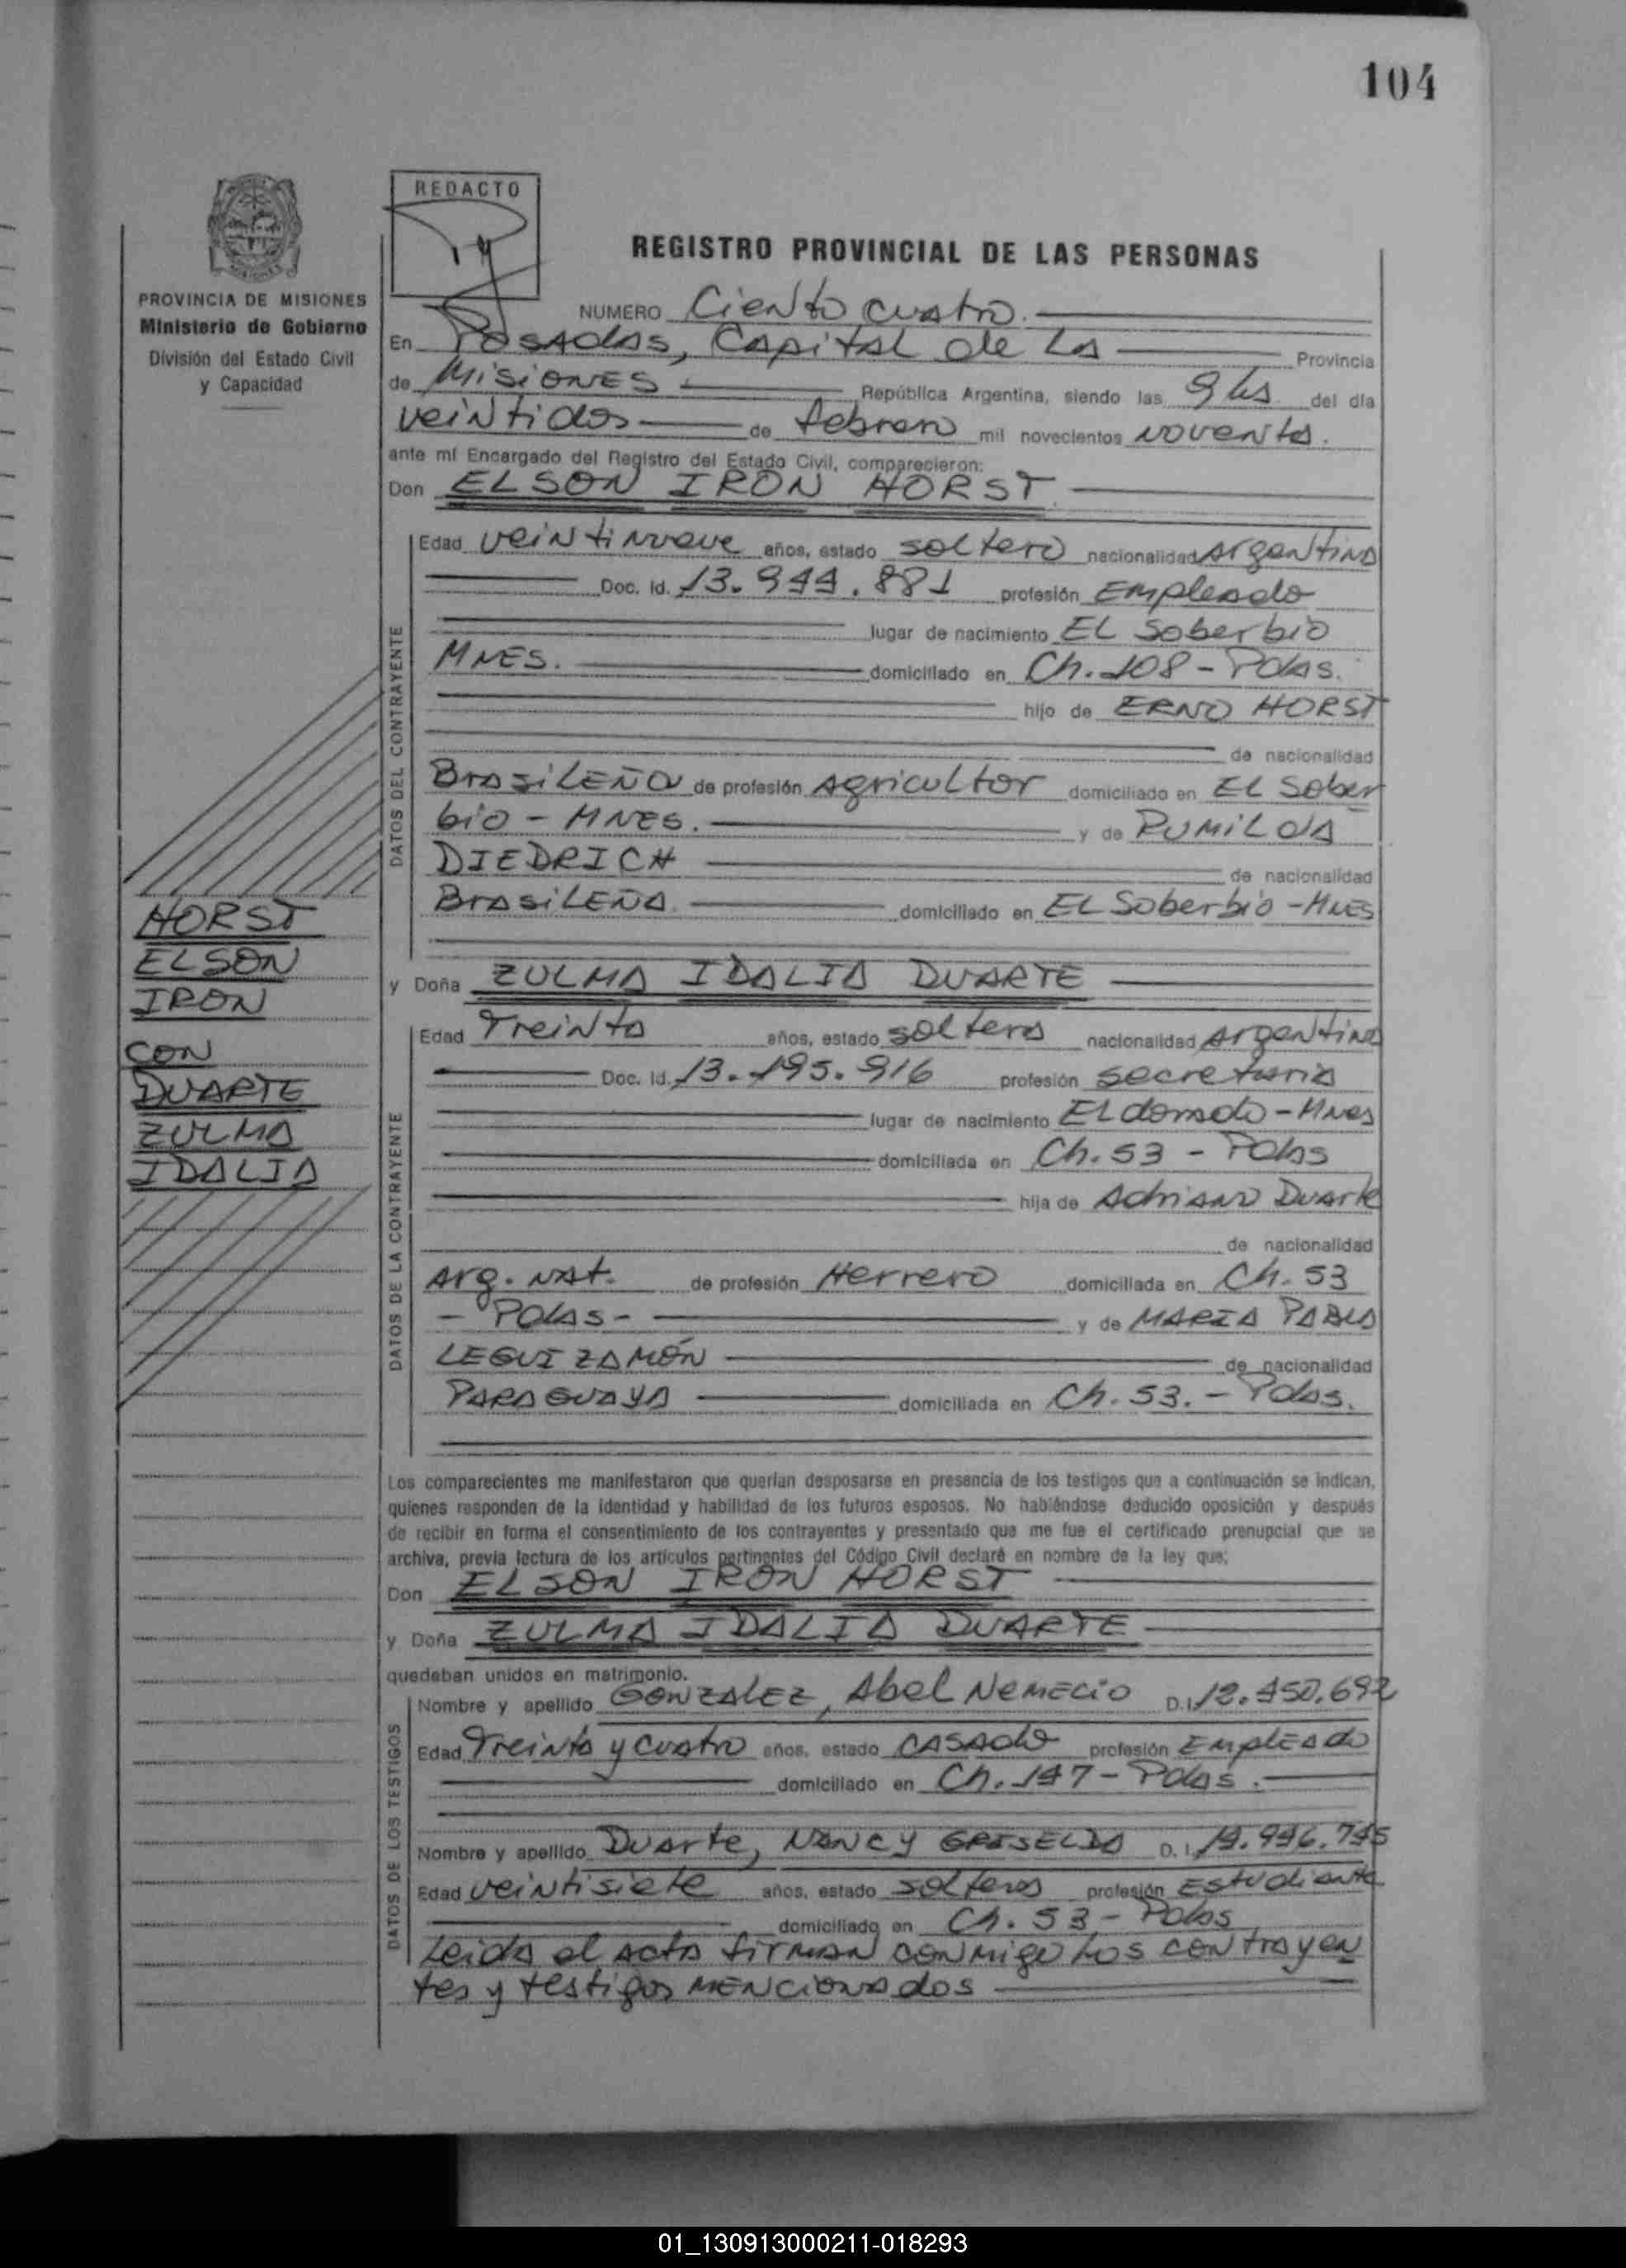 104
REDACTO
REGISTRO PROVINCIAL DE LAS PERSONAS
PROVINCIA DE MISIONES
Ministerio de Gobierno
División del Estado Civil
y Capacidad
NUMERO Ciento cuatro.
En Posadas, Capital de la Provincia
de Misiones República Argentina, siendo las 9 hs del día
veintidos de febrero mil novecientos noventa.
ante mí Encargado del Registro del Estado Civil, comparecieron:
Don ELSON IRON HORST
DATOS DEL CONTRAYENTE
Edad veintinueve años, estado soltero nacionalidad Argentina
Doc. Id. 13.944.881 profesión Empleado
lugar de nacimiento EL Soberbio
MNES. domiciliado en Ch. 108 - Pdas.
hijo de ERNO HORST
de nacionalidad
BrasiLEÑa de profesión Agricultor domiciliado en EL Sober
bio - MNES. y de
DIEDRICH de nacionalidad
BrasiLEÑA domiciliado en EL Soberbio - MNES
HORST
ELSON
IRON
CON
DUARTE
ZULMA
IDALIA
y Doña ZULMA IDALIA DUARTE
DATOS DE LA CONTRAYENTE
Edad Treinta años, estado soltera nacionalidad Argentina
Doc. Id. 13.195.916 profesión secretaria
lugar de nacimiento ELdorado - Mnes
domiciliada en Ch. 53 - Pdas
hija de Adriano Duarte
de nacionalidad
Arg. nat. de profesión Herrero domiciliada en Ch. 53
- Pdas - y de MARIA PABLA
LEGUIZAMÓN de nacionalidad
PARAGUAYA domiciliada en Ch. 53. - Pdas.
Los comparecientes me manifestaron que querían desposarse en presencia de los testigos que a continuación se indican,
quienes responden de la identidad y habilidad de los futuros esposos. No habiéndose deducido oposición y después
de recibir en forma el consentimiento de los contrayentes y presentado que me fue el certificado prenupcial que se
archiva, previa lectura de los artículos pertinentes del Código Civil declaré en nombre de la ley que;
Don ELSON IRON HORST
y Doña ZULMA IDALIA DUARTE
quedaban unidos en matrimonio.
DATOS DE LOS TESTIGOS
Nombre y apellido GONZALEZ, Abel Nemecio D.I. 12.450.692
Edad Treinta y cuatro años, estado CASADO profesión Empleado
domiciliado en Ch. 147 - Pdas.
Nombre y apellido Duarte, NANCY GRISELDA D.I. 14.946.745
Edad veintisiete años, estado soltera profesión Estudiante
domiciliado en Ch. 53 - Pdas
Leida el acta firman conmigo los contrayen
tes y testigos mencionados
01_130913000211-018293